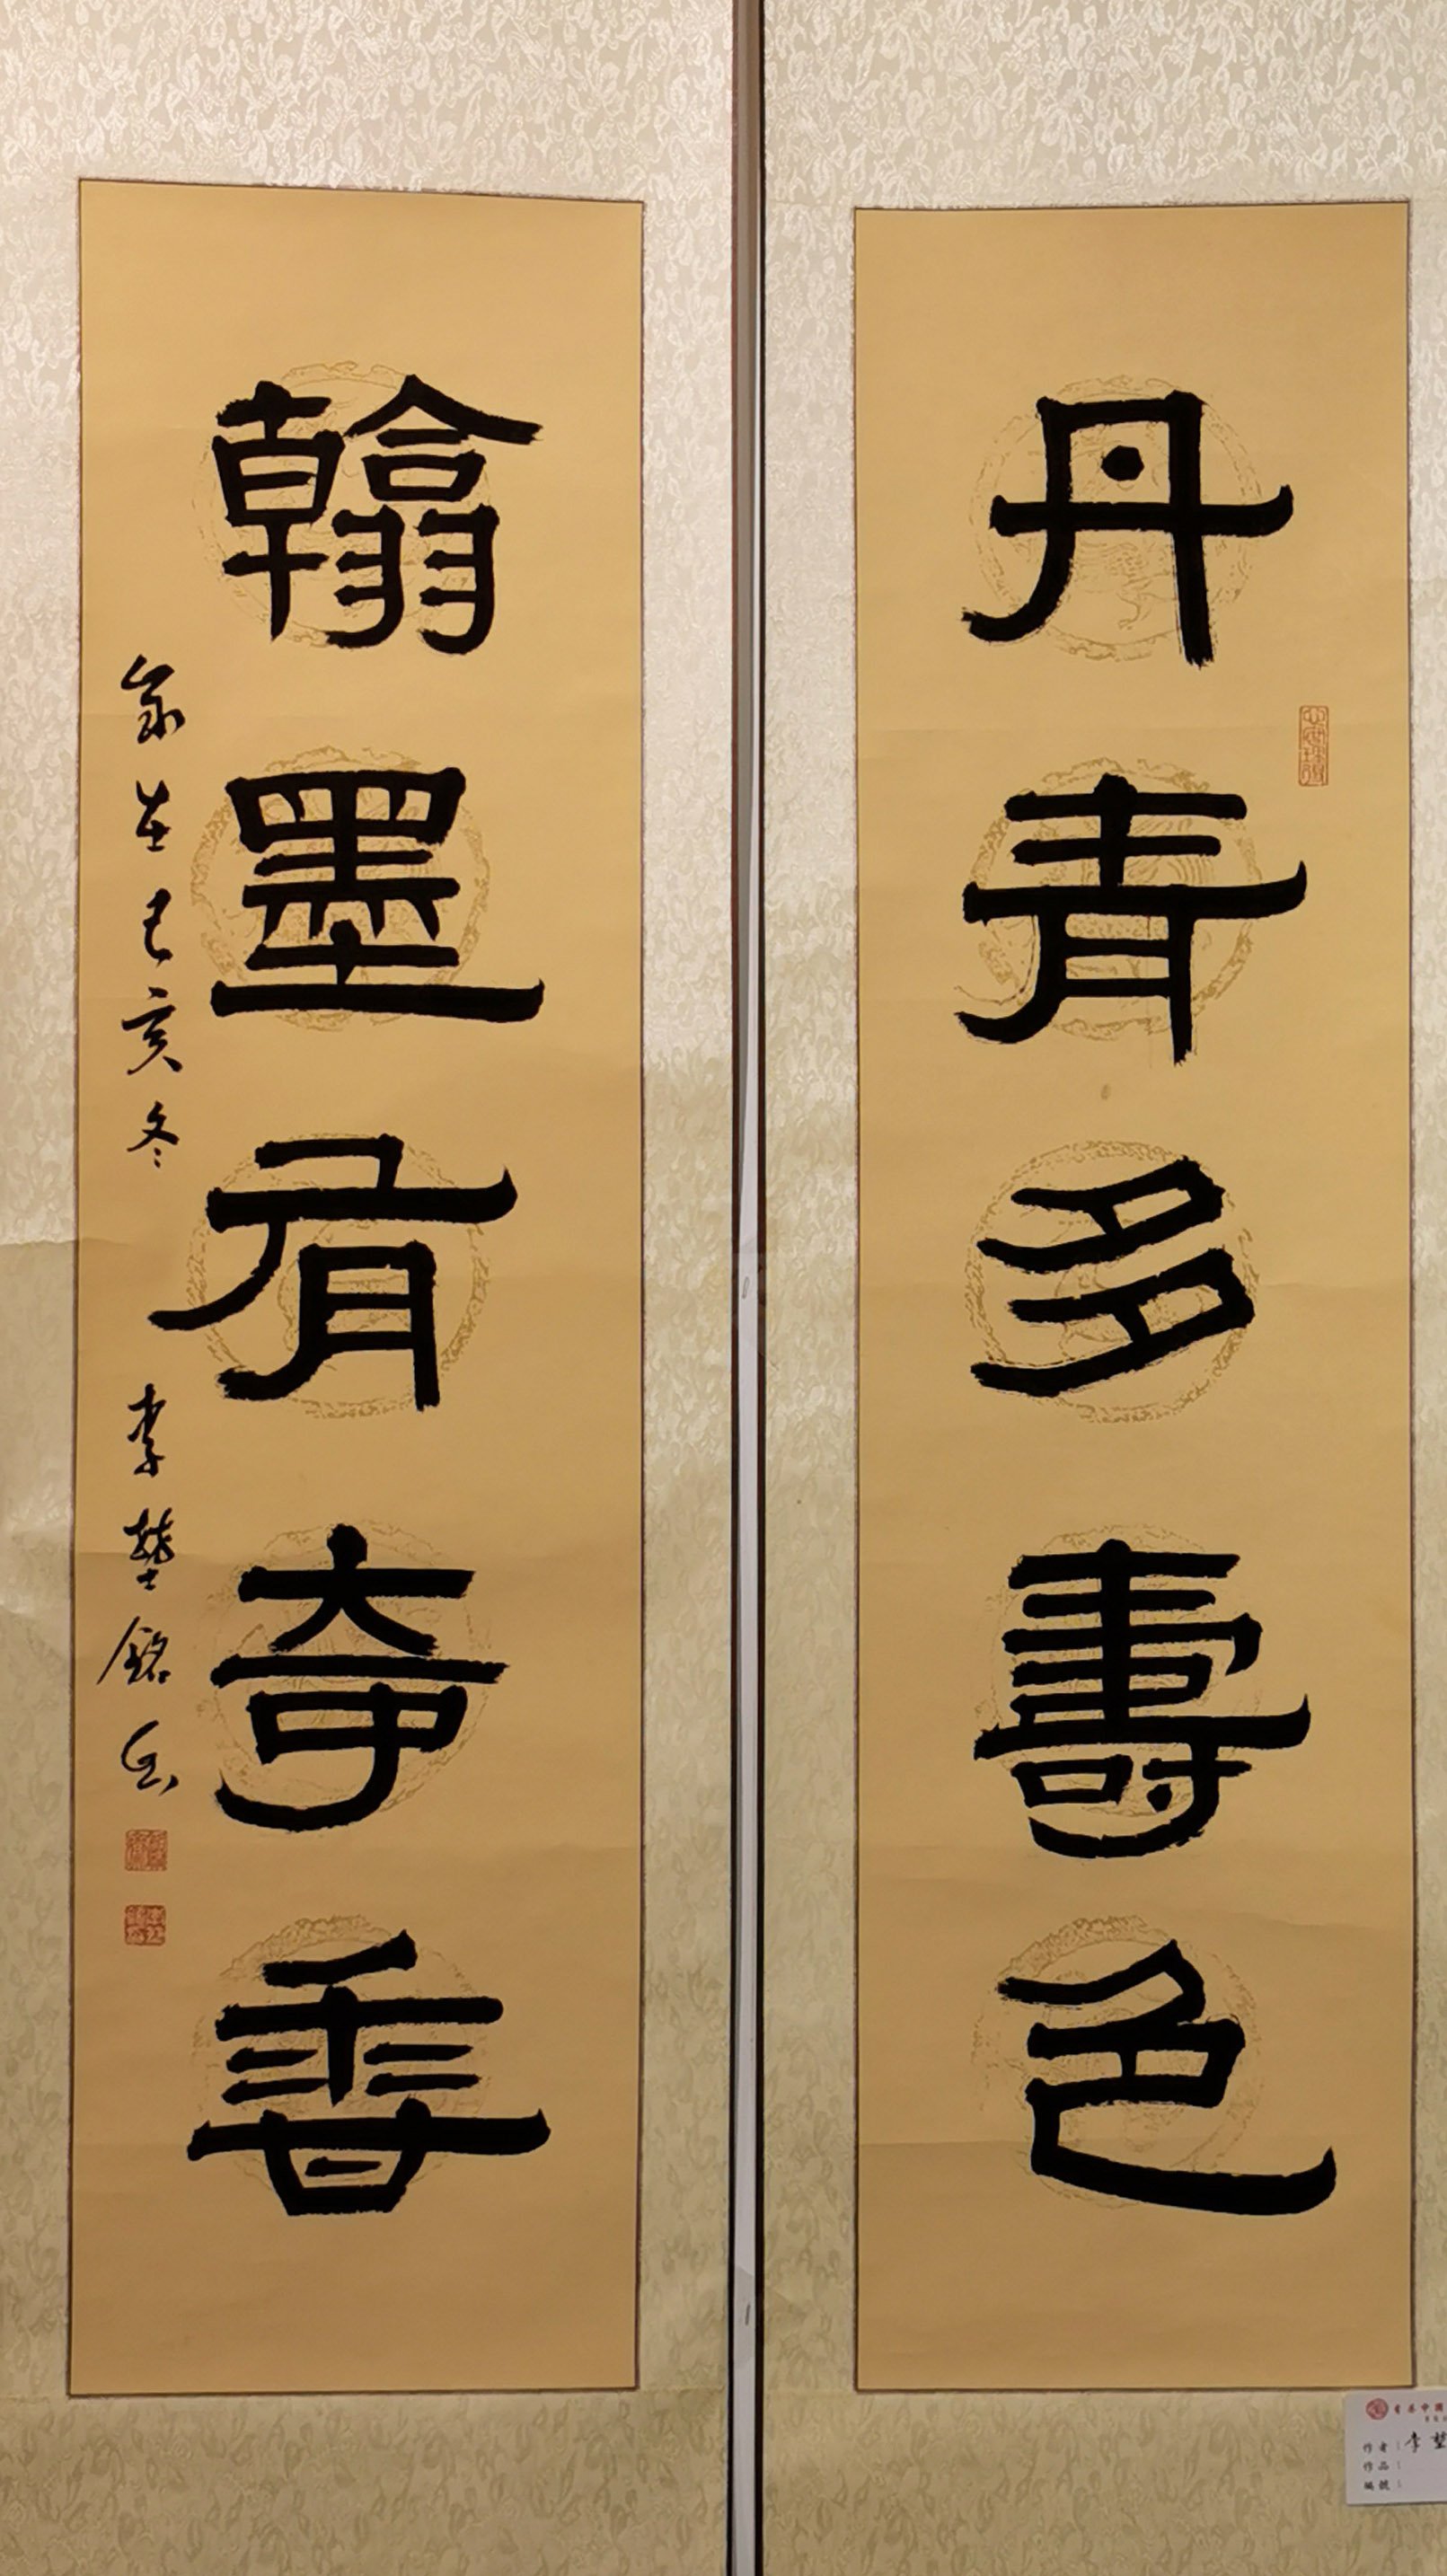 丹青多壽色
翰墨有奇香
歲在己亥冬
李堃銘書
香港中國
作者：李堃
作品：
編號：